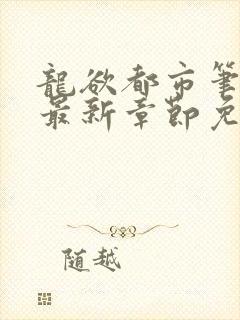 龍欲都市筆
最新章節免
随越